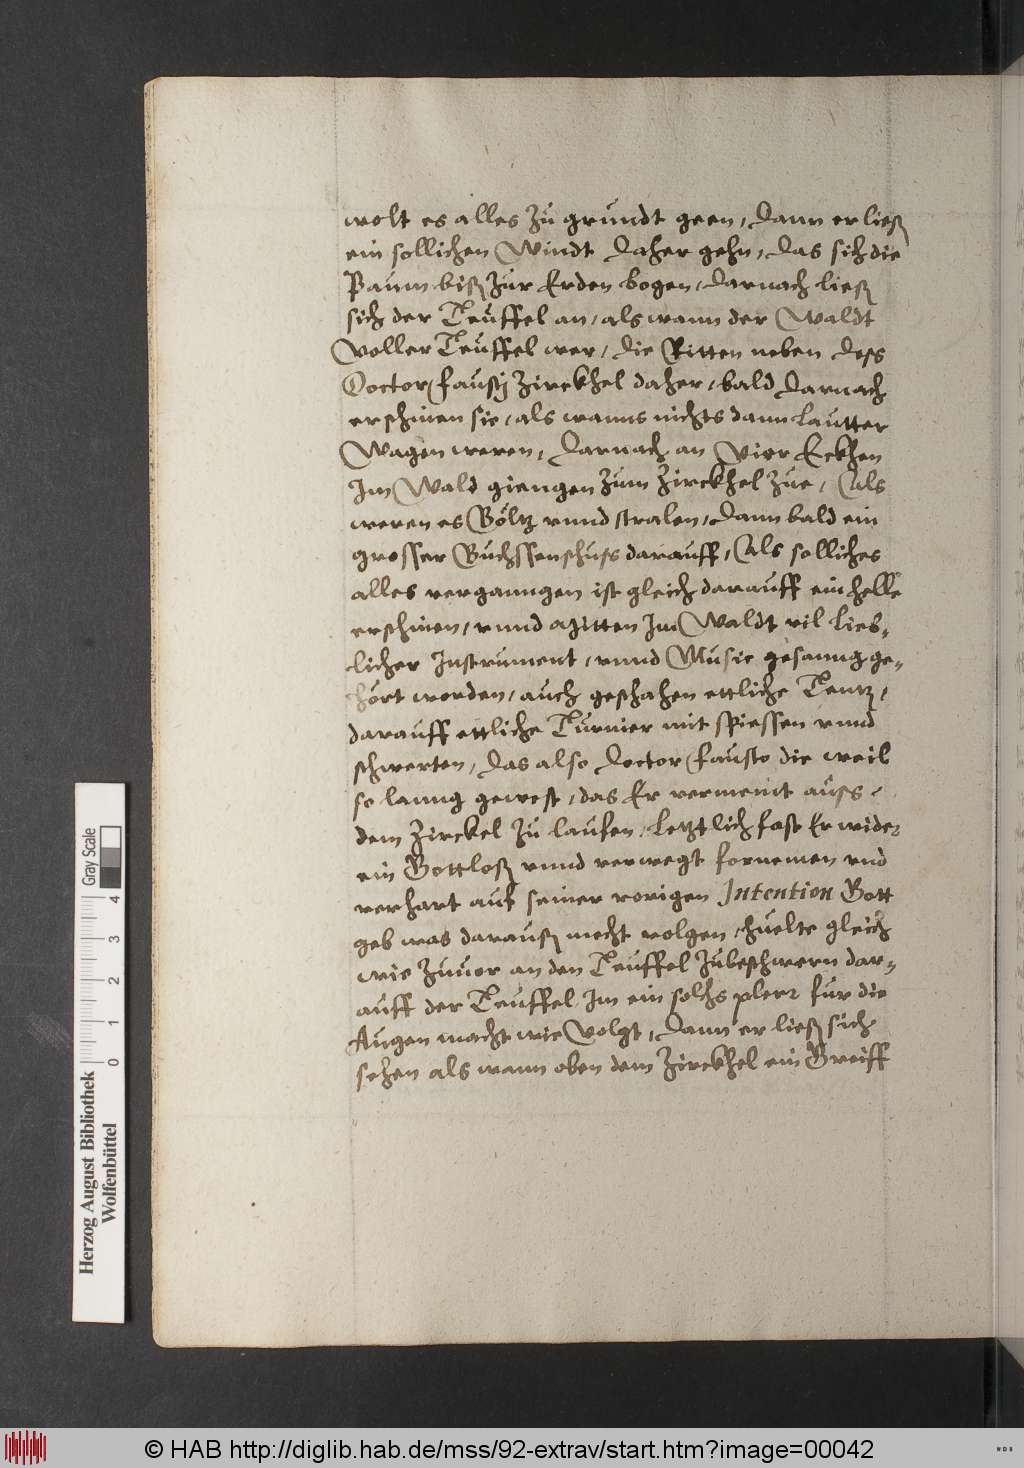 wolt es alles zu grundt geen, dann er ließ
ein sollichen Windt daher gehn, das sich die
Paum biß zur Erden bogen, darnach ließ
sich der Teuffel an, als wann der Waldt
voller Teuffel wer, die Ritten neben dess
Doctor Fausti Zirckhel daher, bald darnach
erschinen sie, als wanns nichts dann Lautter
Wagen weren, darnach an vier Eckhen
Im Wald giengen zum Zirckhel zue, Als
weren es Böltz vnnd stralen, dann bald ein
grosser Buchssenschuss darauff, Als solliches
alles verganngen ist gleich darauff ein helle
erschinen, vnnd Mitten Im Waldt vil lieb-
licher Instrument, vnnd Music gesanng ge-
hört worden, auch geschahen ettliche Tentz,
darauff ettliche Turnier mit spiessen vnnd
schwerten, das also doctor Fausto die weil
so lanng gewest, das Er vermeint auss
dem Zirckel zu laufen, Letztlich fast Er wider
ein Gottloß vnnd verwegt fornemen vnd
verhart auf seiner vorigen Intention Gott
geb was darauß mecht volgen, huelte gleich
wie zuuor an den Teuffel zubeschwern dar-
auff der Teuffel Im ein solchs plerr fur die
Augen macht wie volgt, dann er ließ sich
sehen als wann oben dem Zirckhel ein Greiff
Gray Scale
0 1 2 3 4
Herzog August Bibliothek
Wolfenbüttel
© HAB http://diglib.hab.de/mss/92-extrav/start.htm?image=00042